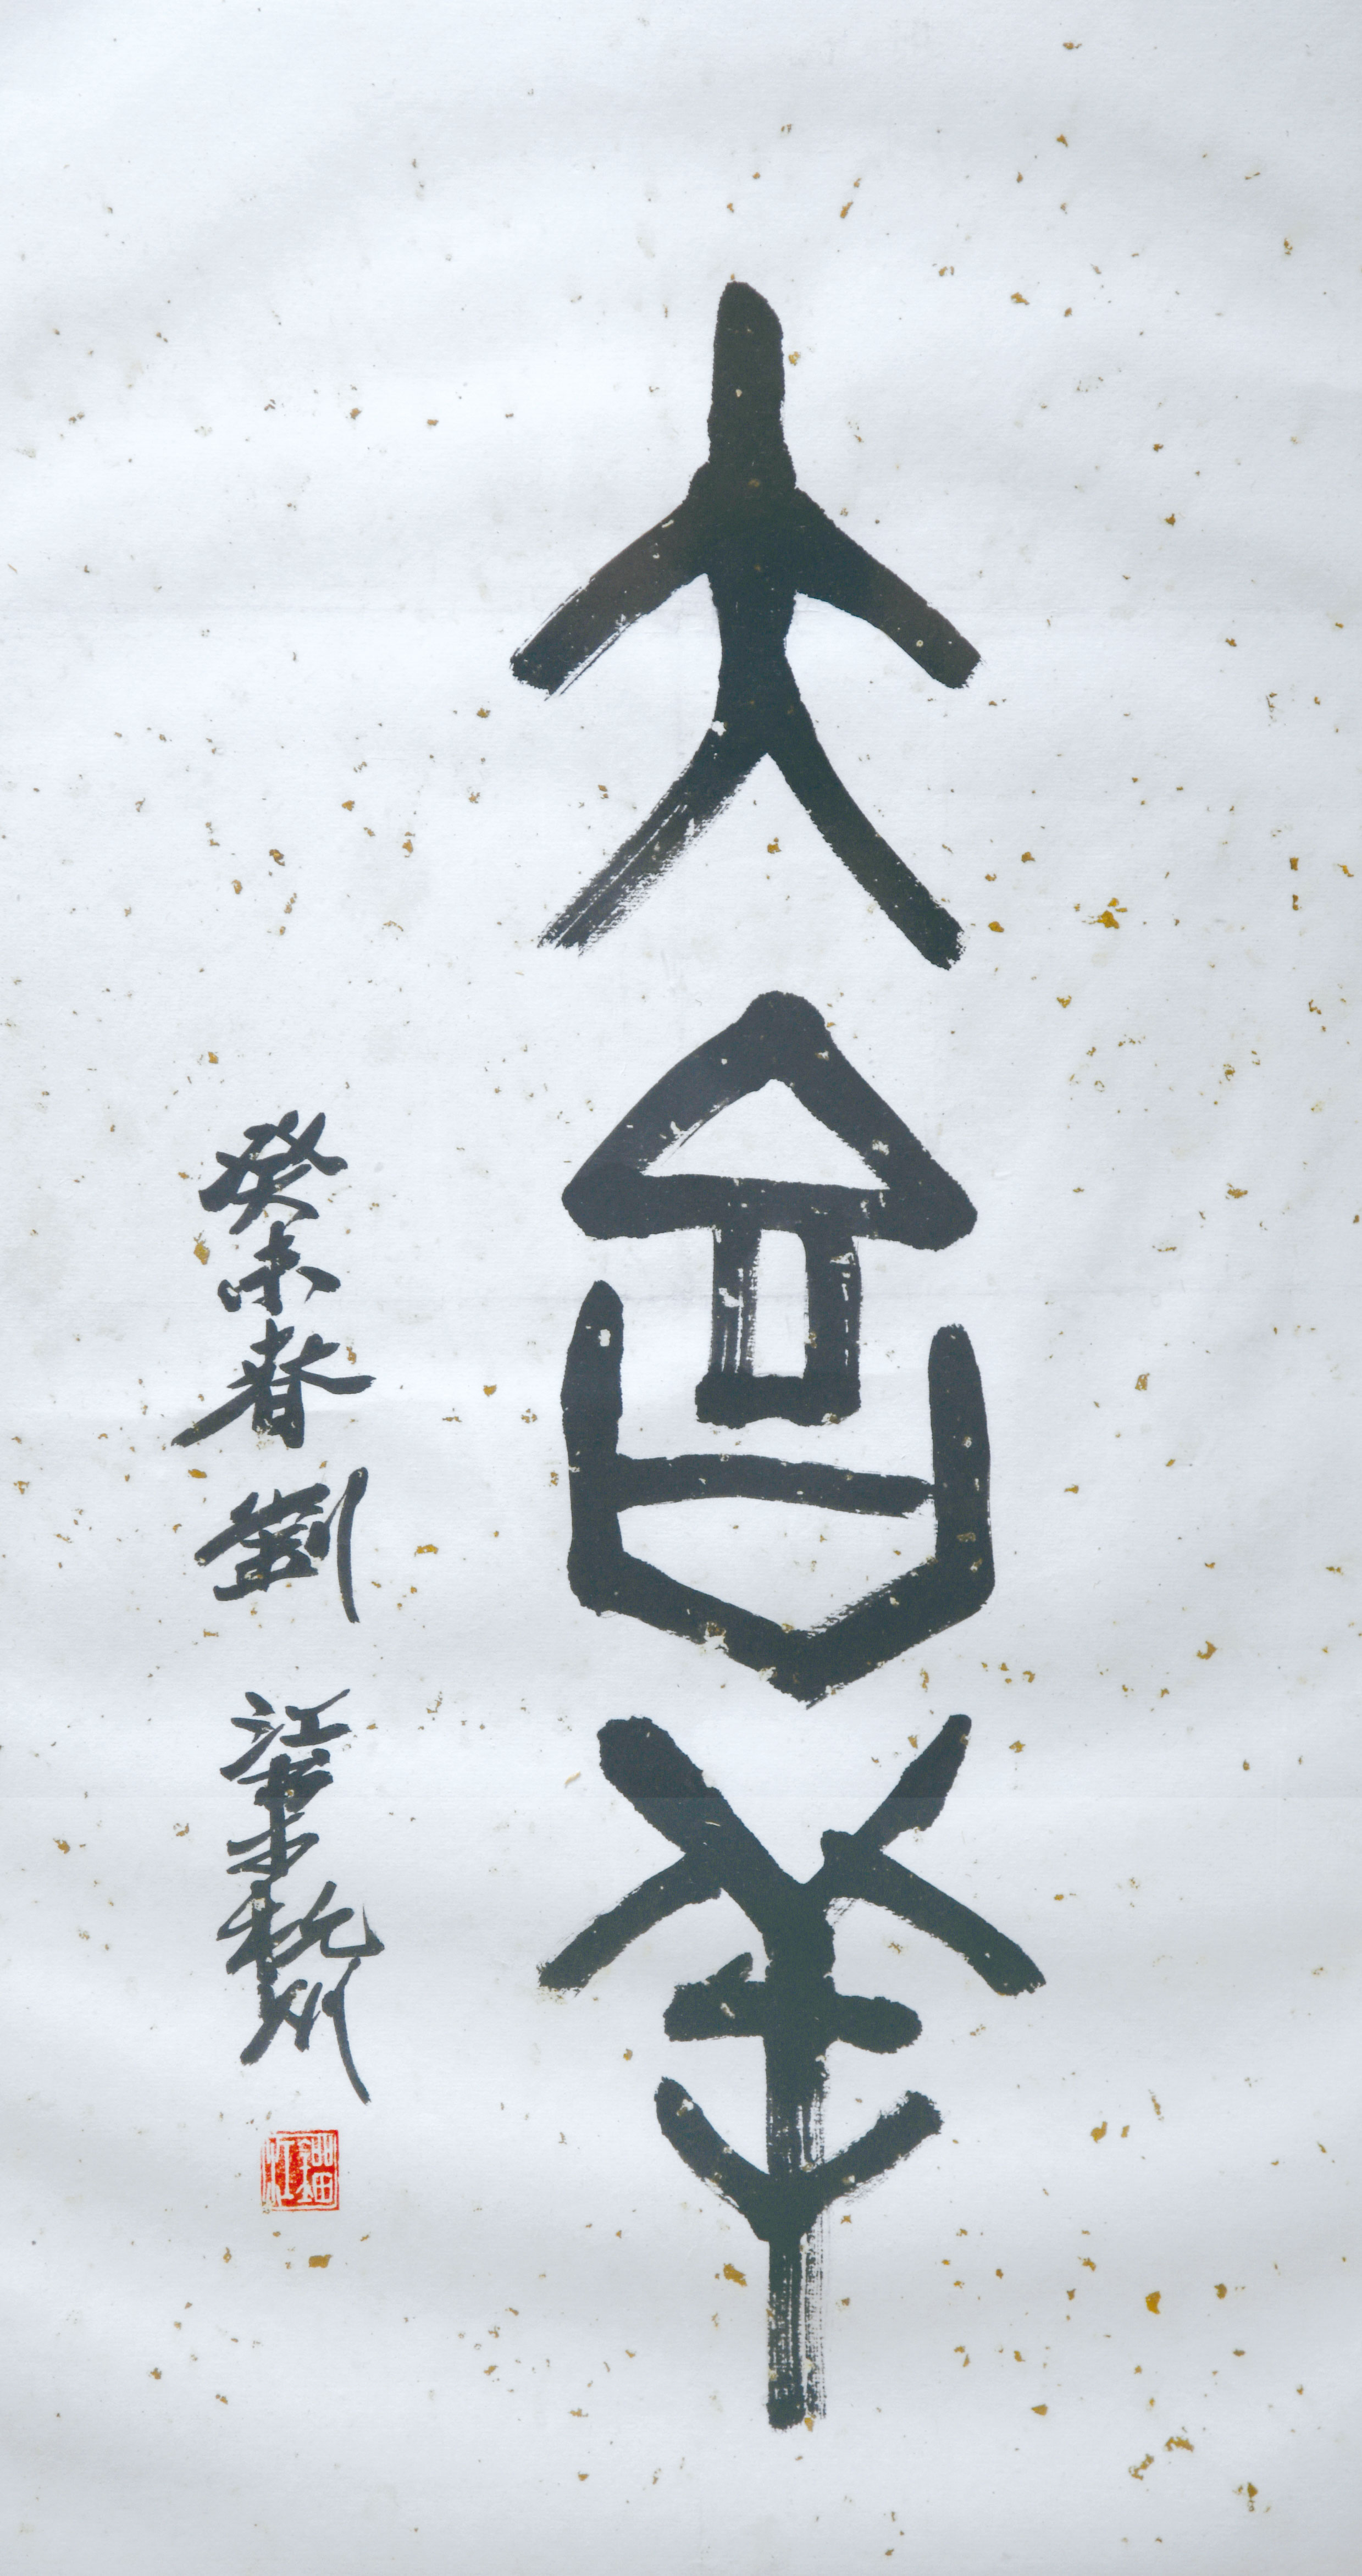 大吉羊
癸未春劉江書于杭州